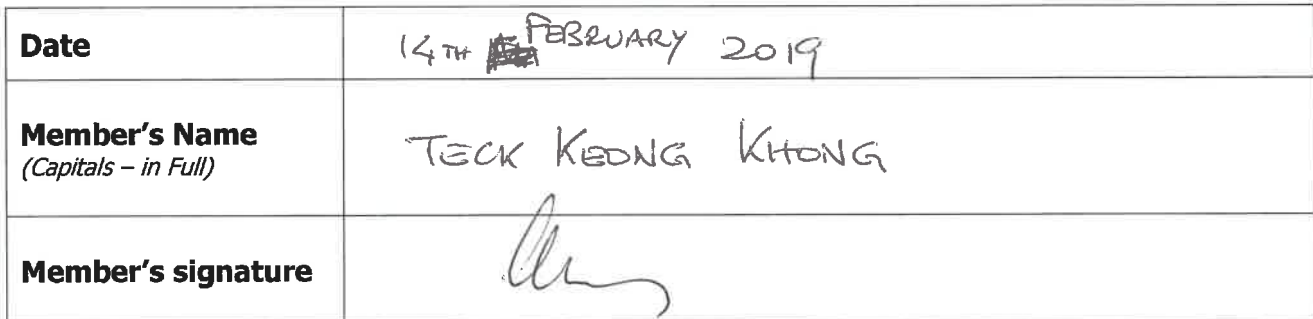 Date 14TH FEBRUARY 2019
Member's Name
(Capitals – in Full)
TECK KEONG KHONG
Member's signature